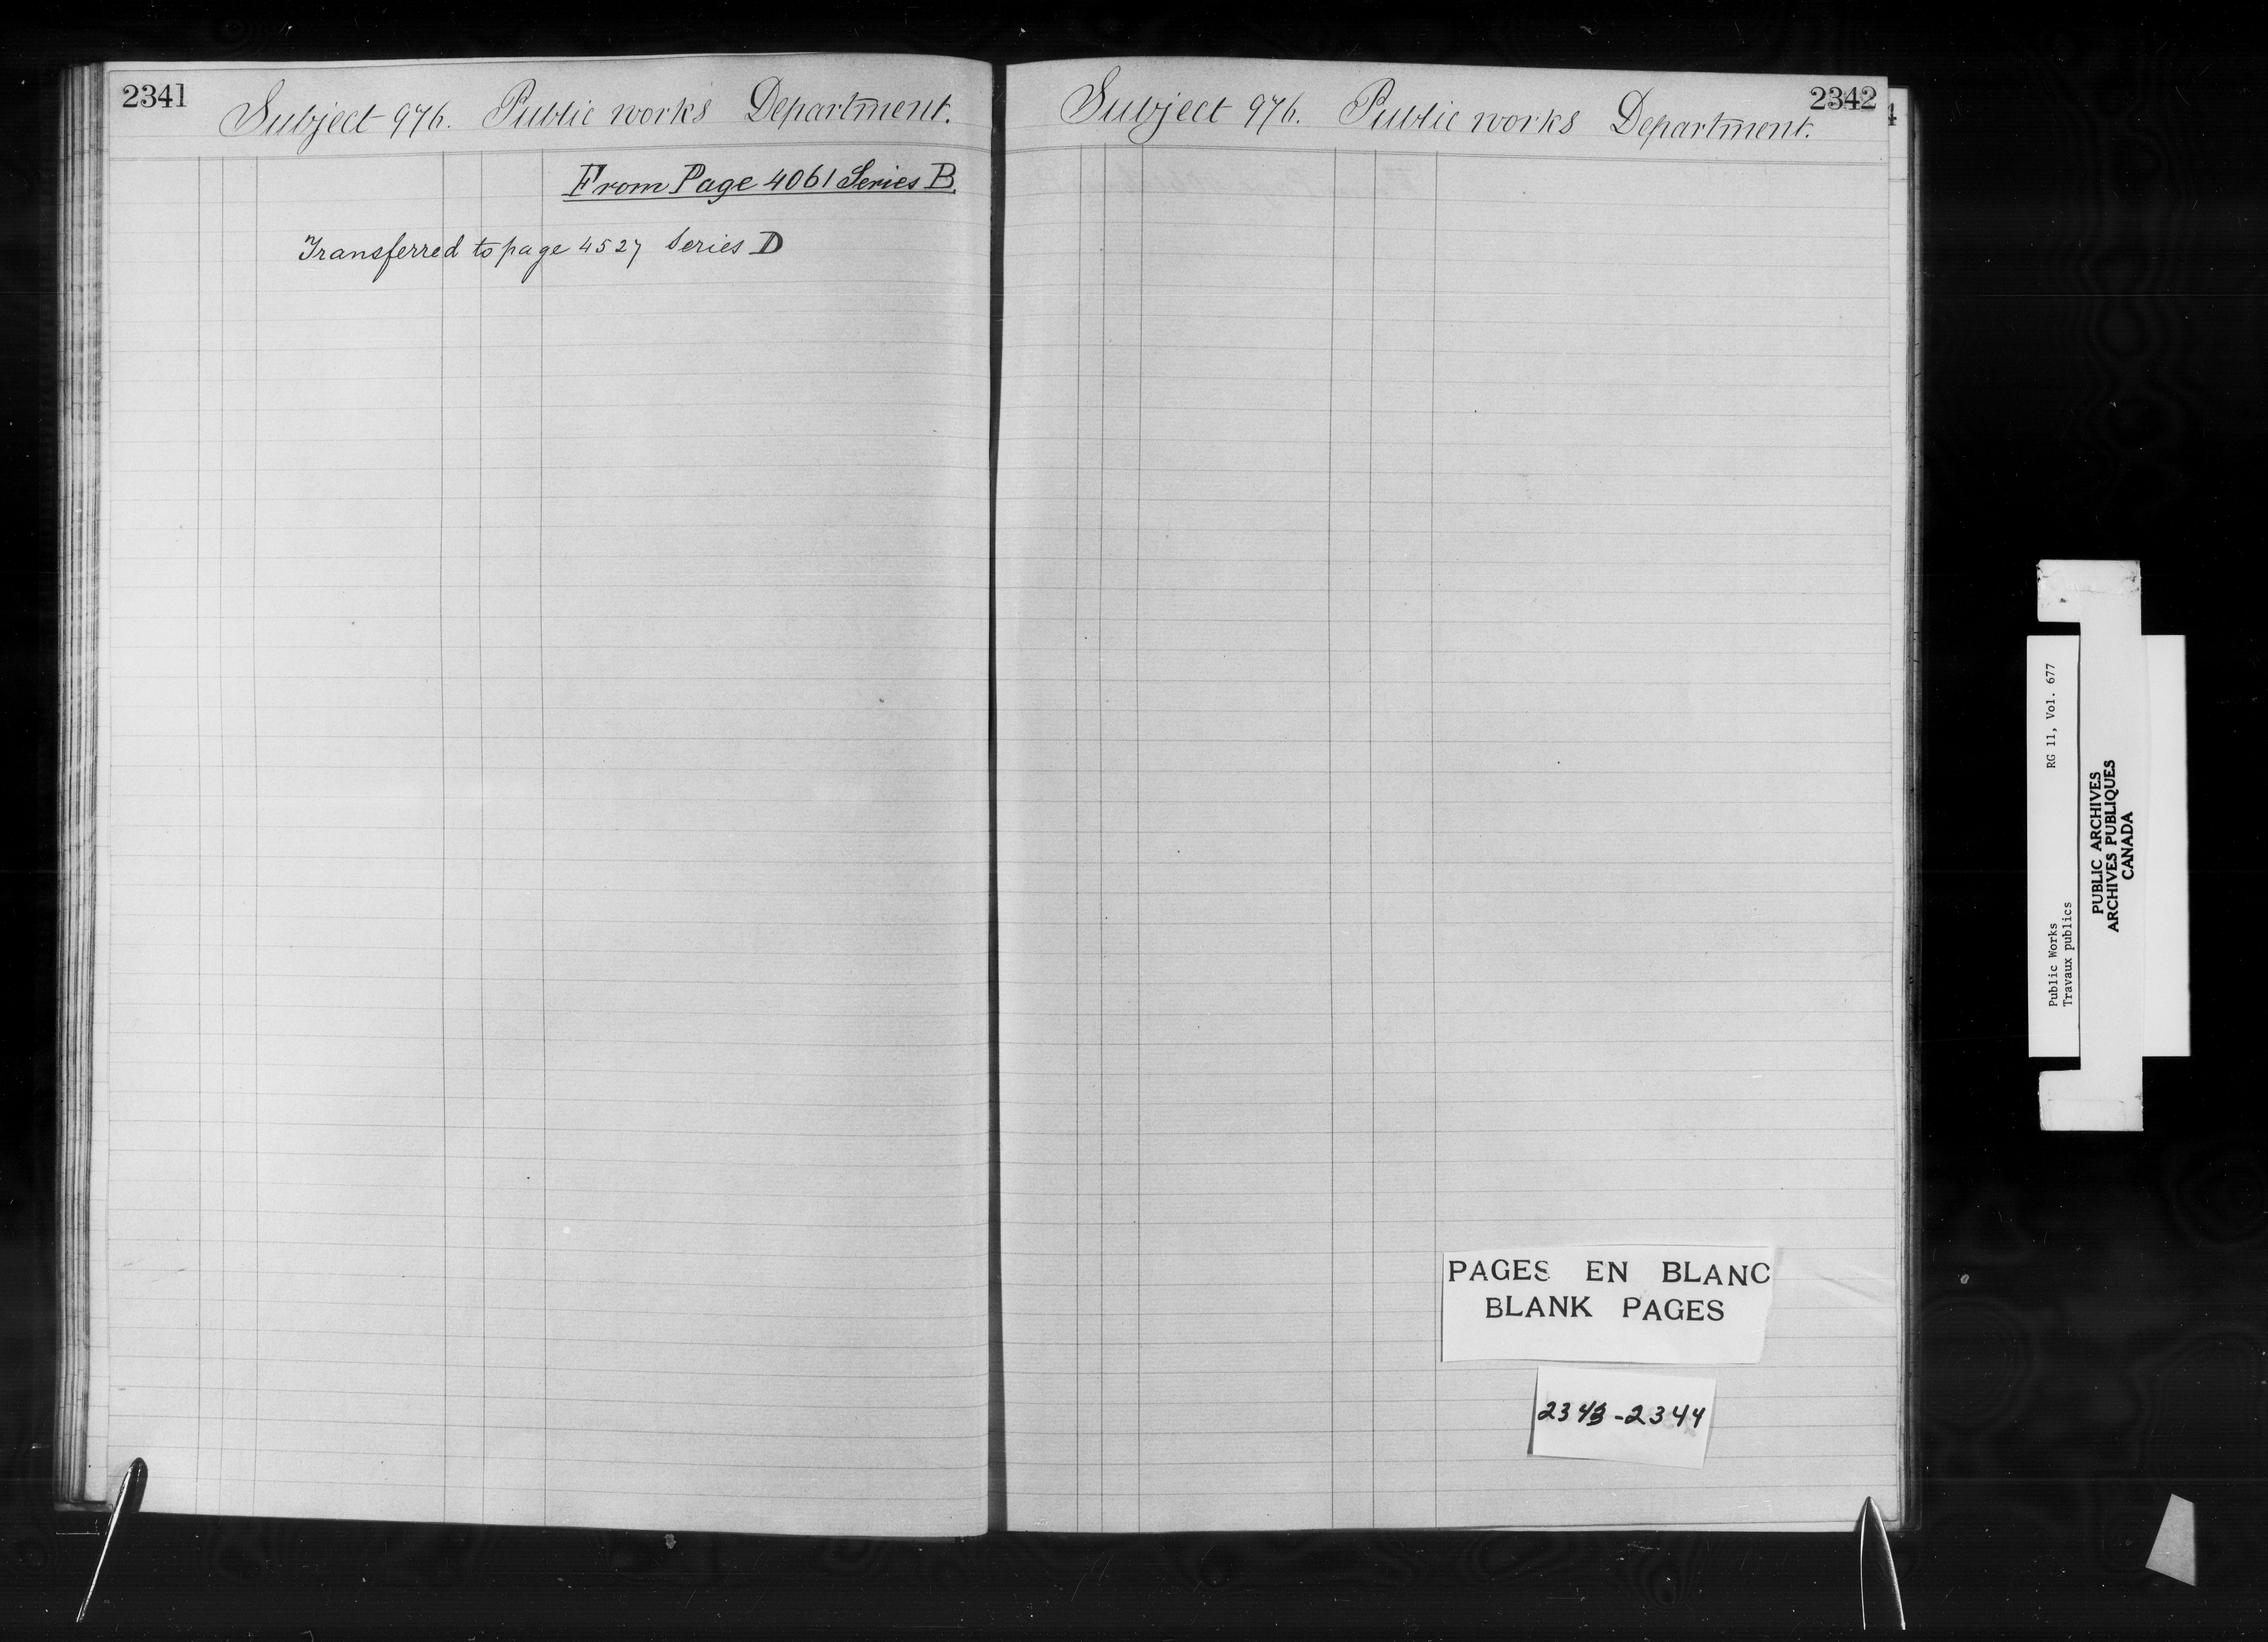 2341
Subject 976. Public works Department.
From Page 4061 Series B.
Transferred to page 4527 Series D
2342
Subject 976. Public works Department.
4
PAGES EN BLANC
BLANK PAGES
2343-2344
Public Works RG 11, Vol. 677
Travaux publics
PUBLIC ARCHIVES
ARCHIVES PUBLIQUES
CANADA